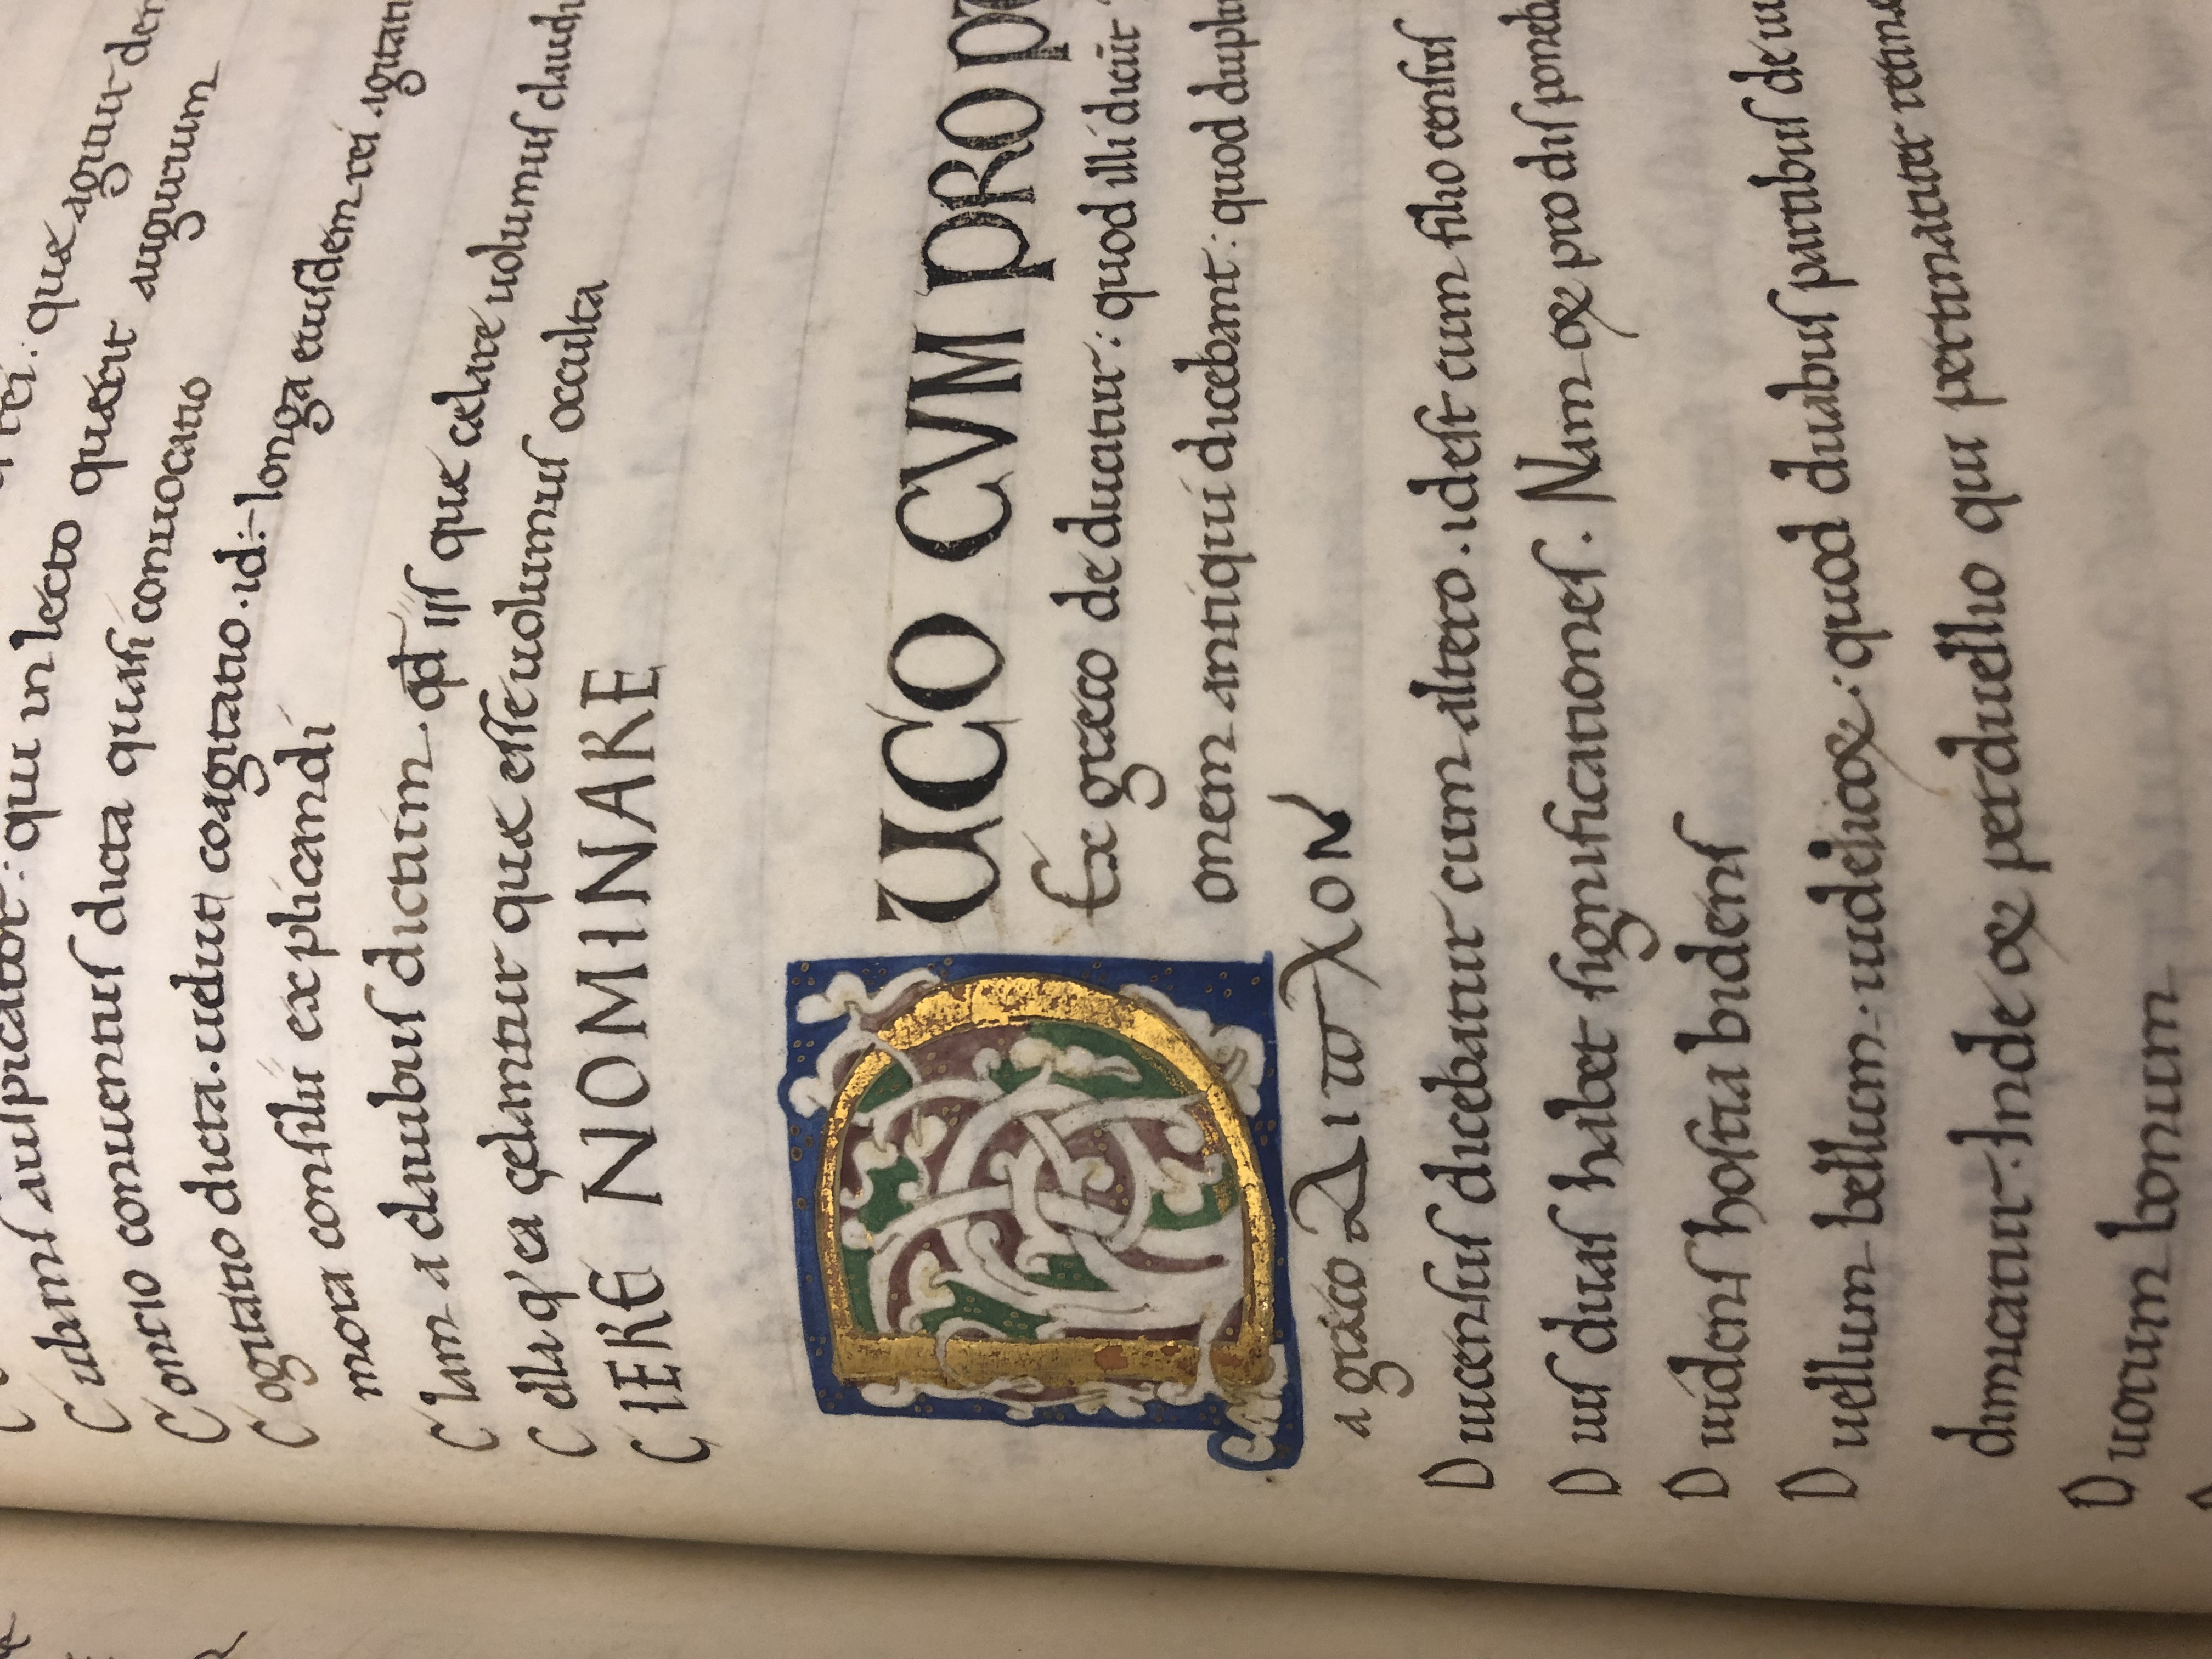 rei. que agitur den
ubans auspicator: qui in lecto querit augurium
Contio conuentus dicta quasi conuocatio
Cogitatio dicta. ueluti coagitatio. id÷ longa eiusdem rei agitati
mora consilii explicandi
Clam a clauibus dictum. qd iis que celare uolumus claudi
Cella q' ea celantur que esse uolumus occulta
CIERE NOMINARE
DUCO CVM PRO P
Ex greco deducitur: quod illi dicut
onem antiqui dicebant: quod duplu
a greco Διτωχον
Ducensus dicebatur cum altero. idest cum filio census
Duis duas habet significationes. Nam & pro dis poneba
Duidens hostia bidens
Duellum bellum: uidelicet: quod duabus partibus de ui
dimicatur. Inde & perduellio qui pertinaciter retine
Duonum bonum